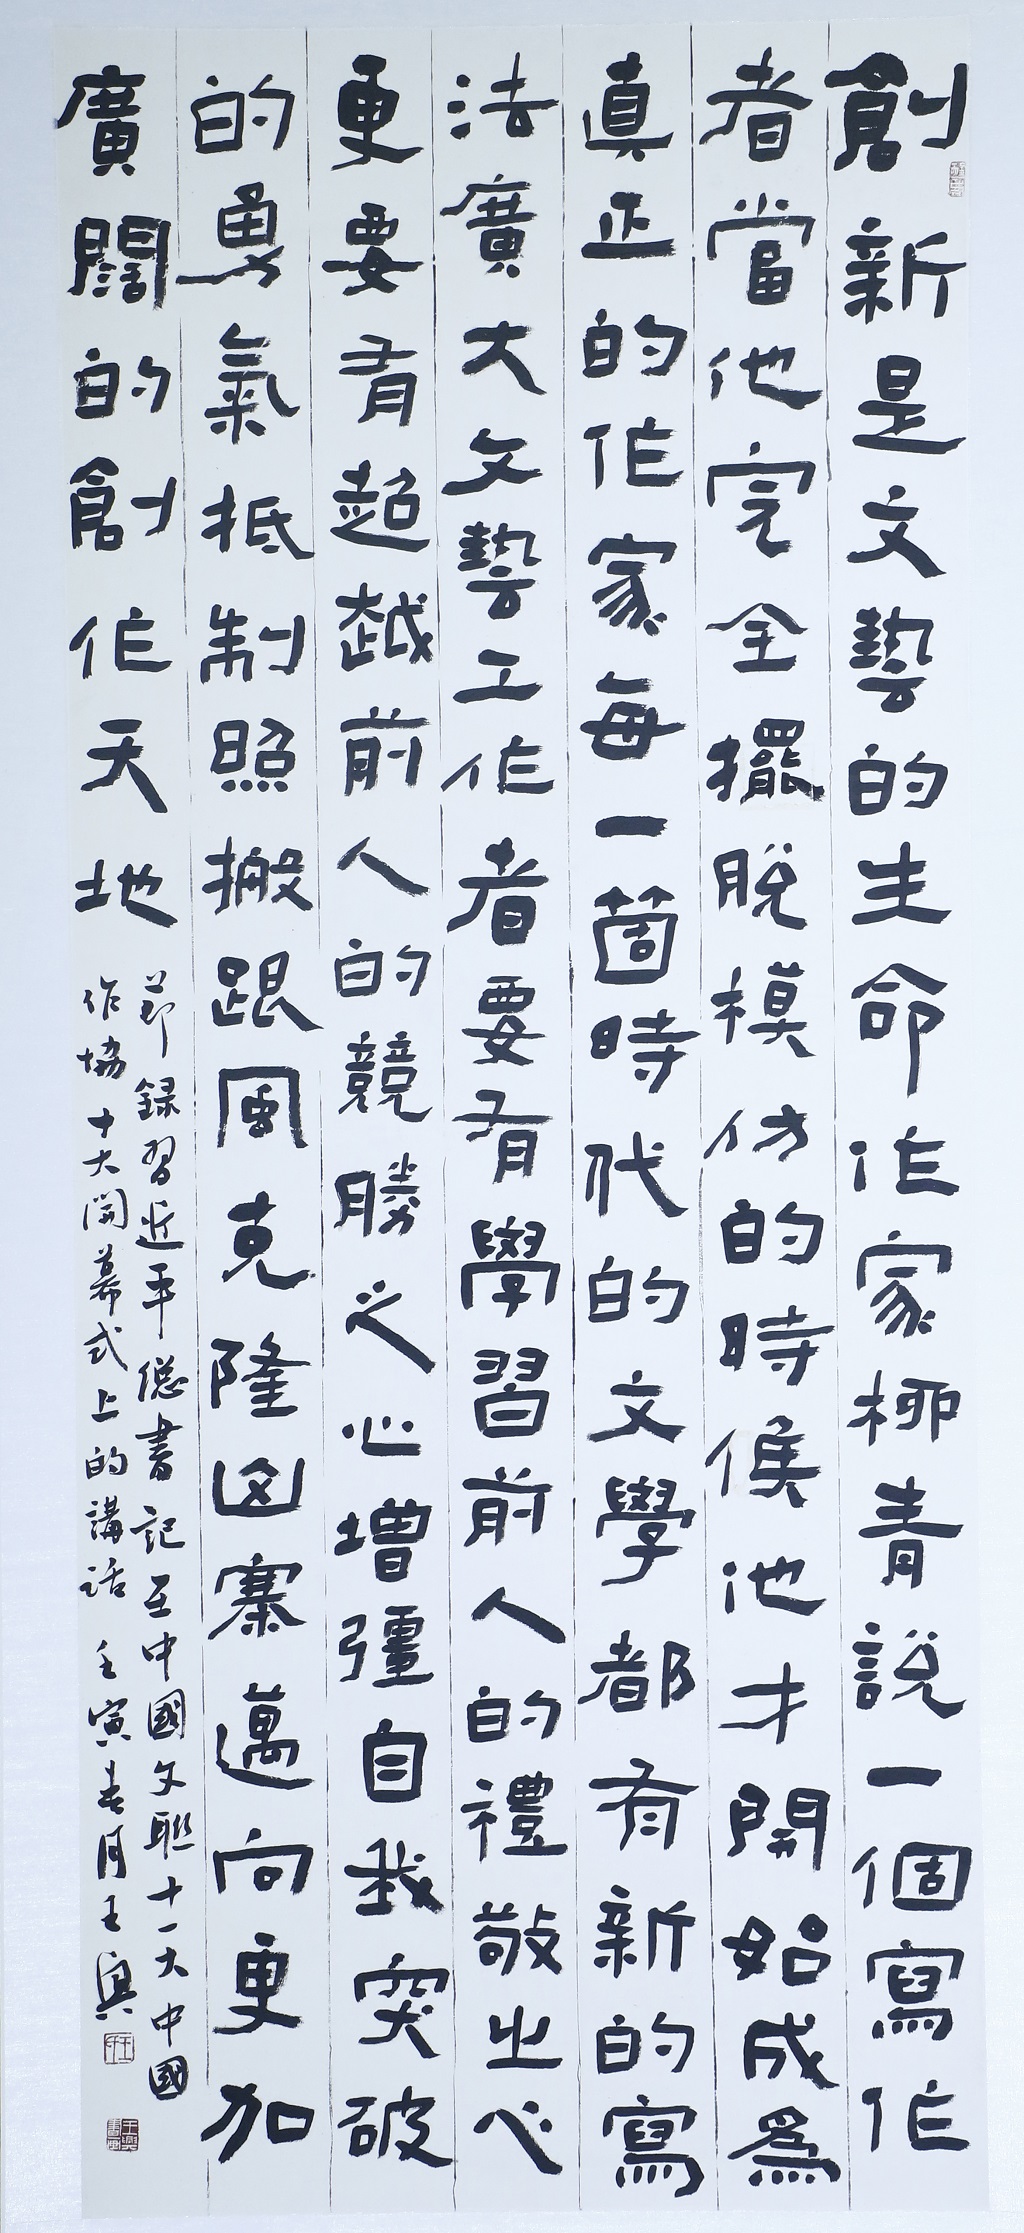 創新是文藝的生命作家柳青說一個寫作
者當他完全擺脫模仿的時候他才開始成為
真正的作家每一箇時代的文學都有新的寫
法廣大文藝工作者要有學習前人的禮敬之心
更要有超越前人的競勝之心增彊自我突破
的勇氣抵制照搬跟風克隆山寨邁向更加
廣闊的創作天地
節録習近平總書記至中國文聯十一大中國
作協十大開幕式上的講話 壬寅春月王興